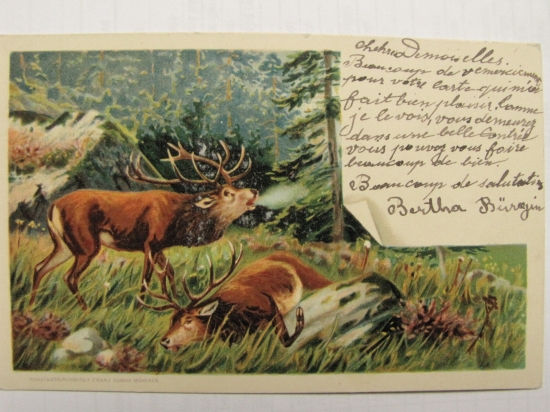 chères Demoiselles.
Beaucoup de remerciements
pour votre carte qui m'a
fait bien plaisir, comme
je le vois, vous demeurez
dans une belle Contrée
vous pouvez vous faire
beaucoup de bien.
Beaucoup de salutations
Bertha Bürgin